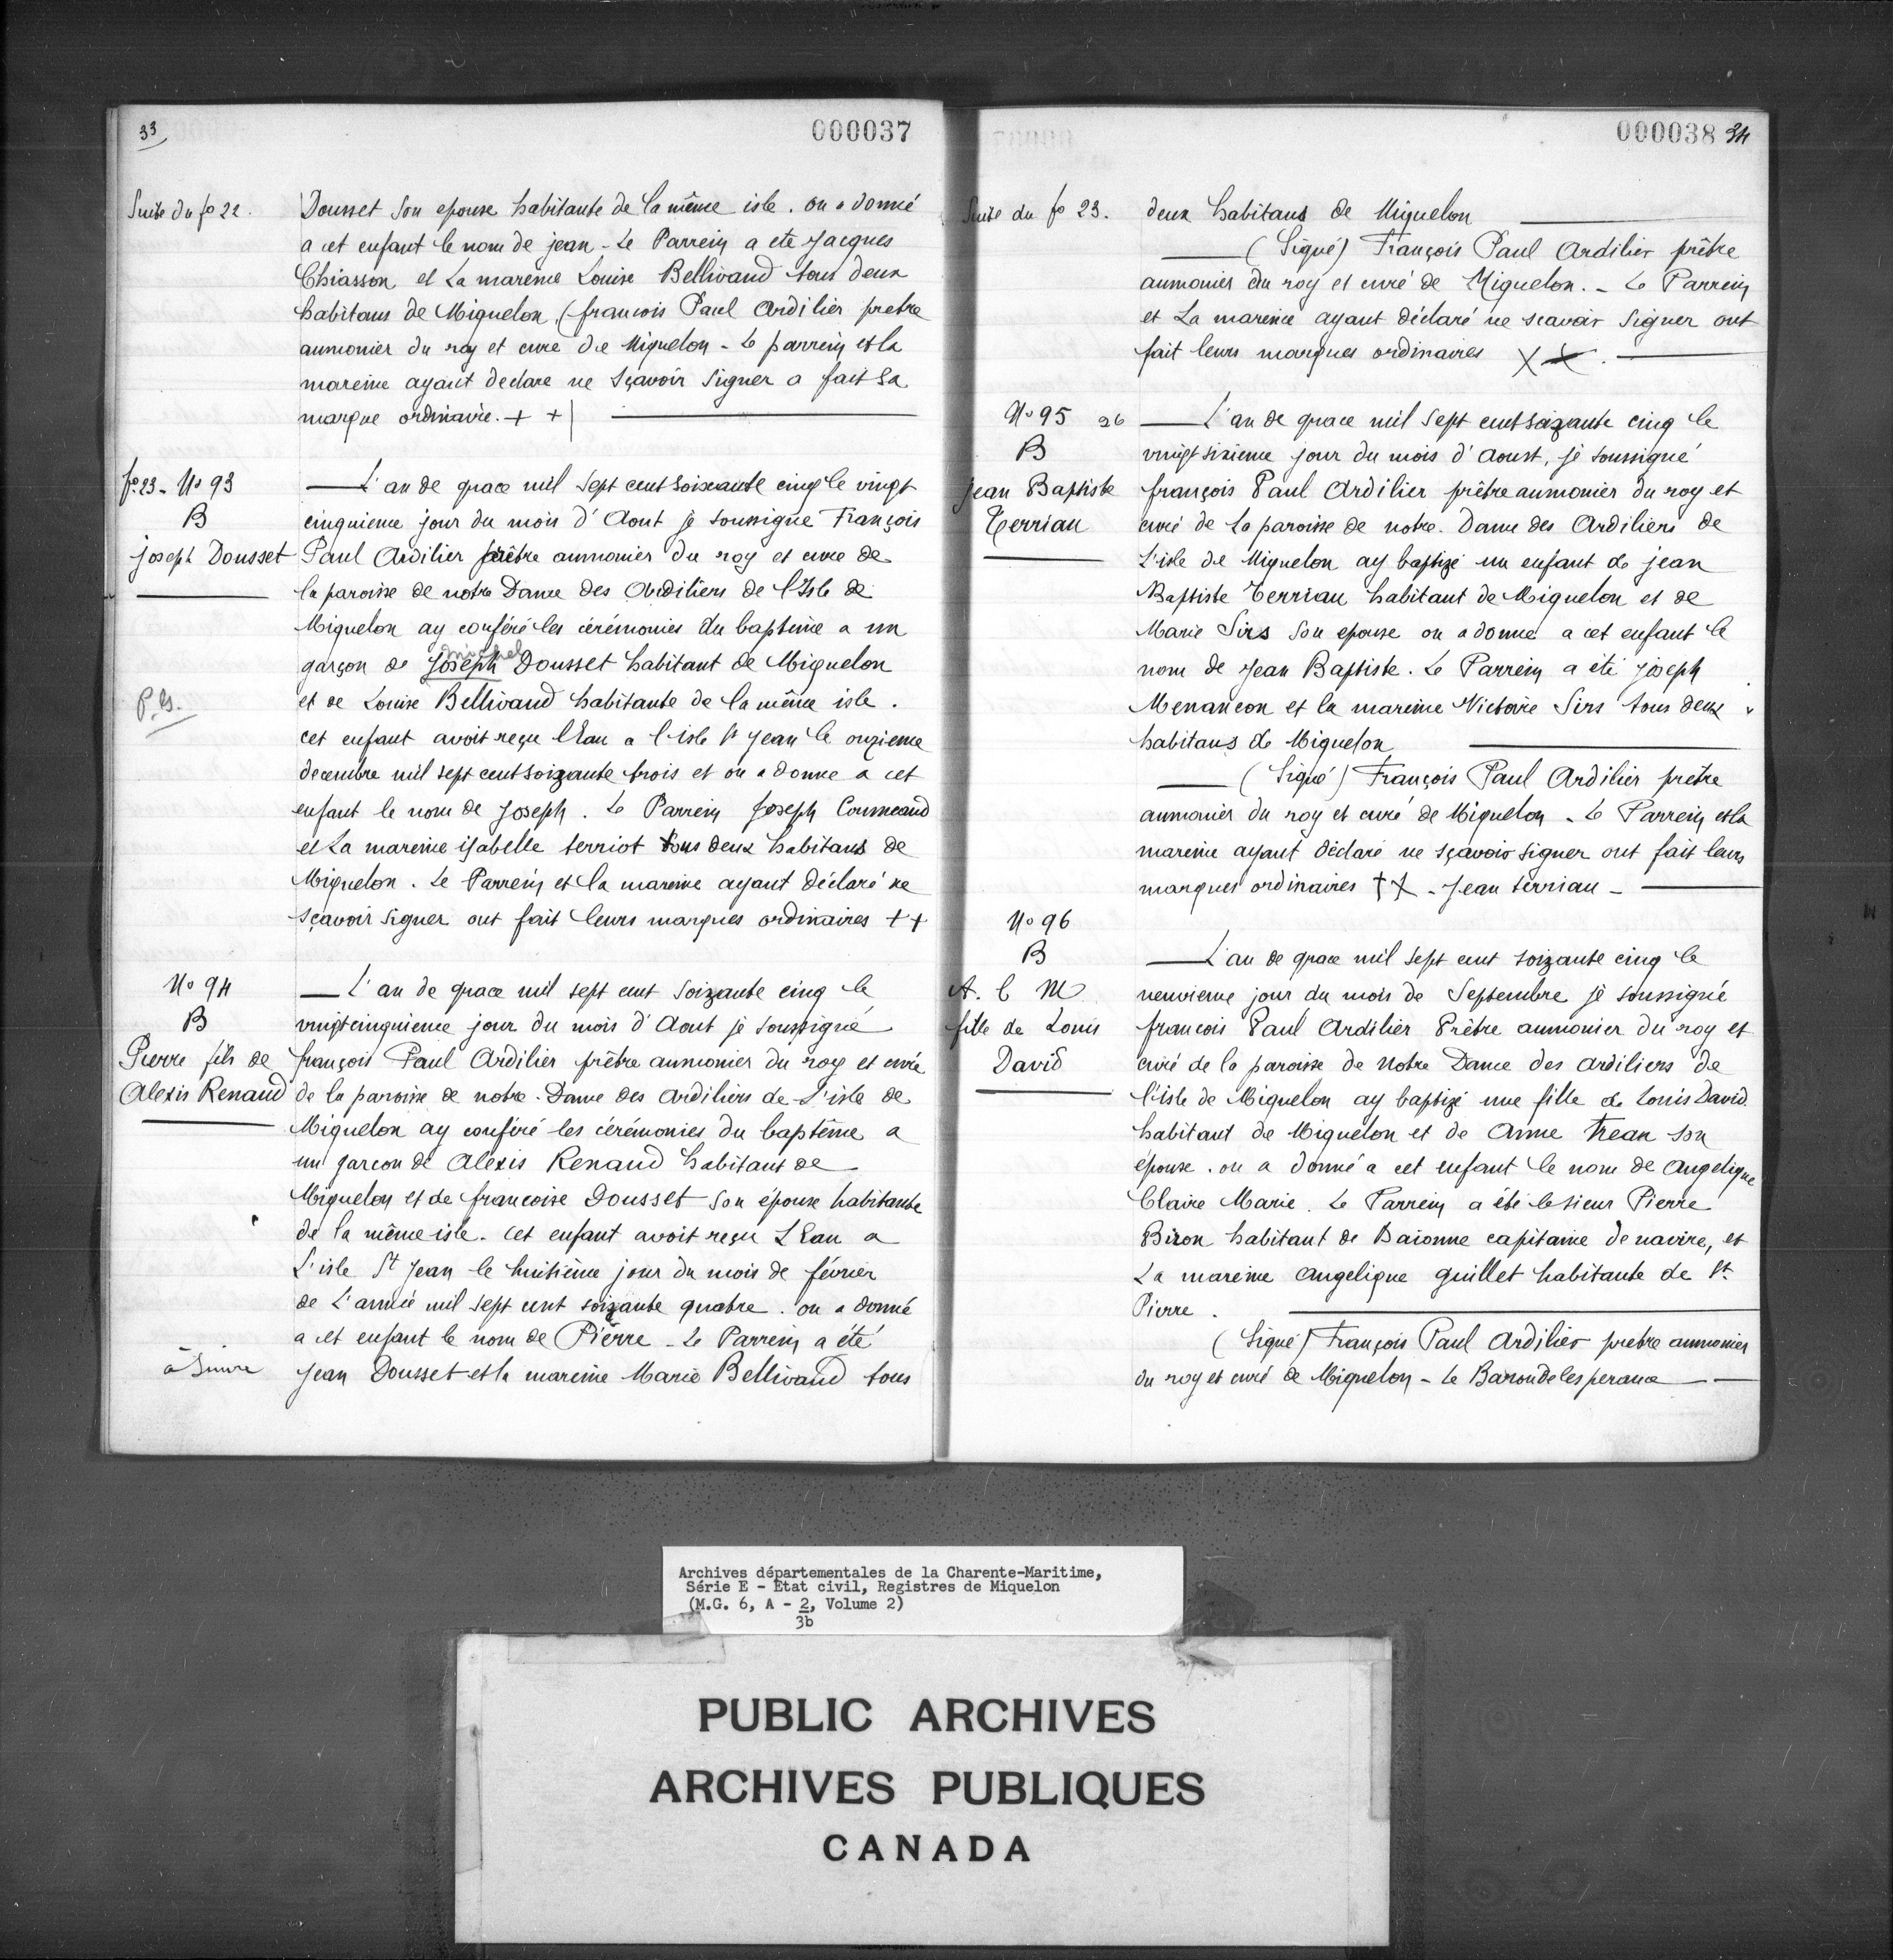 33
000037
Suite du fo 22.
Dousset son epouse habitante de la même isle. on a donné
a cet enfant le nom de jean - Le Parrein a ete Jacques
Chiasson et La mareine Louise Bellivaud tous deux
habitans de Miquelon (francois Paul Ardilier pretre
aumonier du roy et cure de Miquelon - Le parrein et la
mareine ayant declare ne sçavoir signer a fait sa
marque ordinaire. + +
fo. 23 - No 93
B
joseph Dousset
L'an de grace mil sept cent soixante cinq le vingt
cinquieme jour du mois d'Aout je soussigne François
Paul Ardilier prêtre aumonier du roy et cure de
la paroisse de notre Dame des Ardiliers de l'Isle de
Miquelon ay conféré les cérémonies du baptême a un
michel
garçon de Joseph Dousset habitant de Miquelon
P.G.
et de Louise Bellivaud habitante de la même isle.
cet enfant avoit reçu l'Eau a l'isle St Jean le onzieme
decembre mil sept cent soizante trois et on a donne a cet
enfant le nom de Joseph. Le Parrein Joseph Commeaud
et La mareine isabelle terriot tous deux habitans de
Miquelon. Le Parrein et la mareine ayant déclaré ne
sçavoir signer ont fait leurs marques ordinaires + +
No 94
B
Pierre fils de
Alexis Renaud
L'an de grace mil sept cent soizante cinq le
vingt cinquieme jour du mois d'Aout je soussigné
françois Paul Ardilier prêtre aumonier du roy et curé
de la paroisse de notre-Dame des Ardiliers de L'isle de
Miquelon ay conféré les cérémonies du baptême a
un garcon de Alexis Renaud habitant de
Miquelon et de francoise Dousset son épouse habitante
de la même isle. cet enfant avoit reçu L'Eau a
L'isle St Jean le huitième jour du mois de février
de L'année mil sept cent soizante quatre. on a donné
a cet enfant le nom de Pierre - Le Parrein a été
à suivre
Jean Dousset et la mareine Marie Bellivaud tous
000038 34
Suite du fo 23.
deux habitans de Miquelon
(Signé) François Paul Ardilier prêtre
aumonier du roy et curé de Miquelon. - Le Parrein
et La mareine ayant déclaré ne scavoir signer ont
fait leurs marques ordinaires X X.
No 95 26
B
Jean Baptiste
Terriau
L'an de grace mil sept cent soizante cinq le
vingt sixieme jour du mois d'Aoust, je soussigné
françois Paul Ardilier prêtre aumonier du roy et
curé de La paroisse de notre-Dame des Ardiliers de
L'isle de Miquelon ay baptizé un enfant de jean
Baptiste Terriau habitant de Miquelon et de
Marie Sirs son epouse on a donne a cet enfant le
nom de Jean Baptiste. Le Parrein a été joseph
Menançon et la mareine Victoire Sirs tous deux
habitans de Miquelon
(Signé) François Paul Ardilier pretre
aumonier du roy et curé de Miquelon - Le Parrein et la
mareine ayant déclaré ne sçavoir signer ont fait leurs
marques ordinaires + X - Jean terriau -
No 96
B
A. C M
fille de Louis
David
L'an de grace mil sept cent soizante cinq le
neuvieme jour du mois de Septembre je soussigné
francois Paul Ardilier Prêtre aumonier du roy et
curé de la paroisse de Notre Dame des ardiliers de
l'isle de Miquelon ay baptizé une fille de Louis David
habitant de Miquelon et de Anne Trean son
épouse. on a donné a cet enfant le nom de Angelique
Claire Marie. Le Parrein a été le sieur Pierre
Biron habitant de Baionne capitaine de navire, et
La mareine angelique guillet habitante de St
Pierre.
(Signé) François Paul Ardilier pretre aumonier
du roy et curé de Miquelon - Le Baron de lesperance
Archives départementales de la Charente-Maritime,
Série E - État civil, Registres de Miquelon
(M.G. 6, A - 2, Volume 2)
3b
PUBLIC ARCHIVES
ARCHIVES PUBLIQUES
CANADA